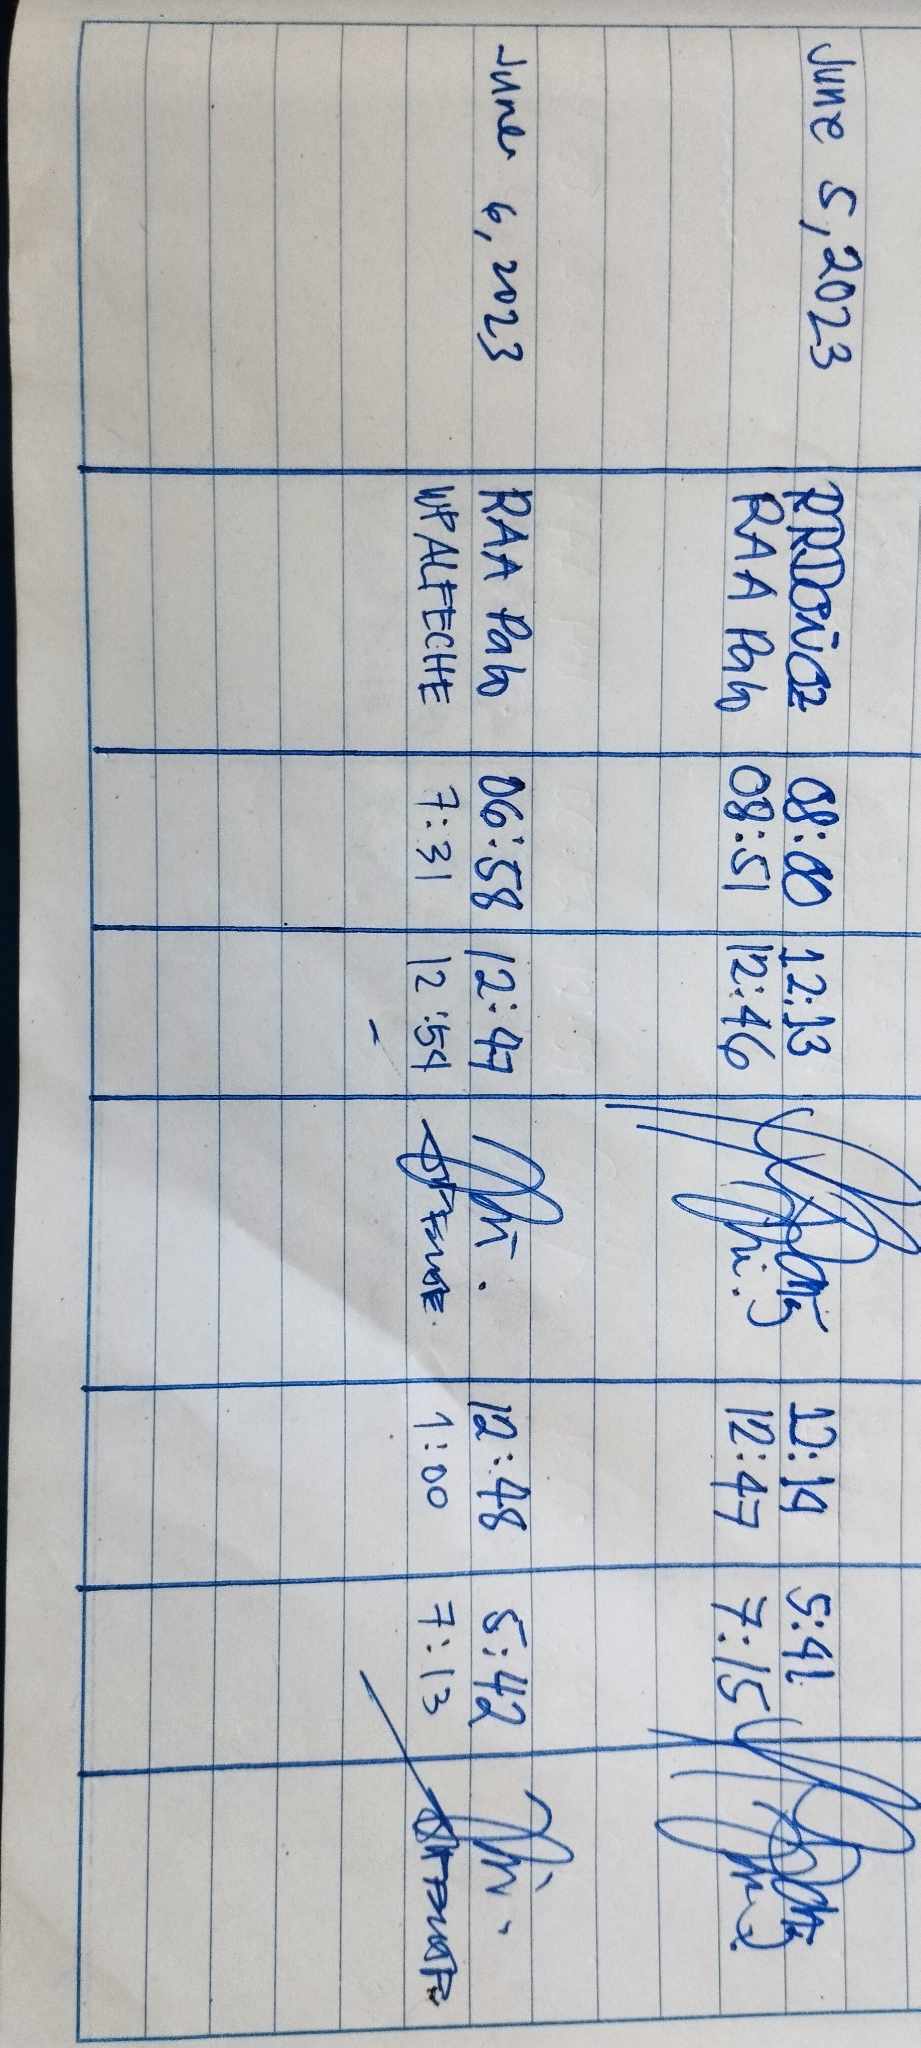 June 5, 2023 08:00 12:13 12:14 5:41
RAA Palo 08:51 12:46 12:47 7:15
June 6, 2023 RAA Palo 06:58 12:47 12:48 5:42
WPALFECHE 7:31 12:54 1:00 7:13